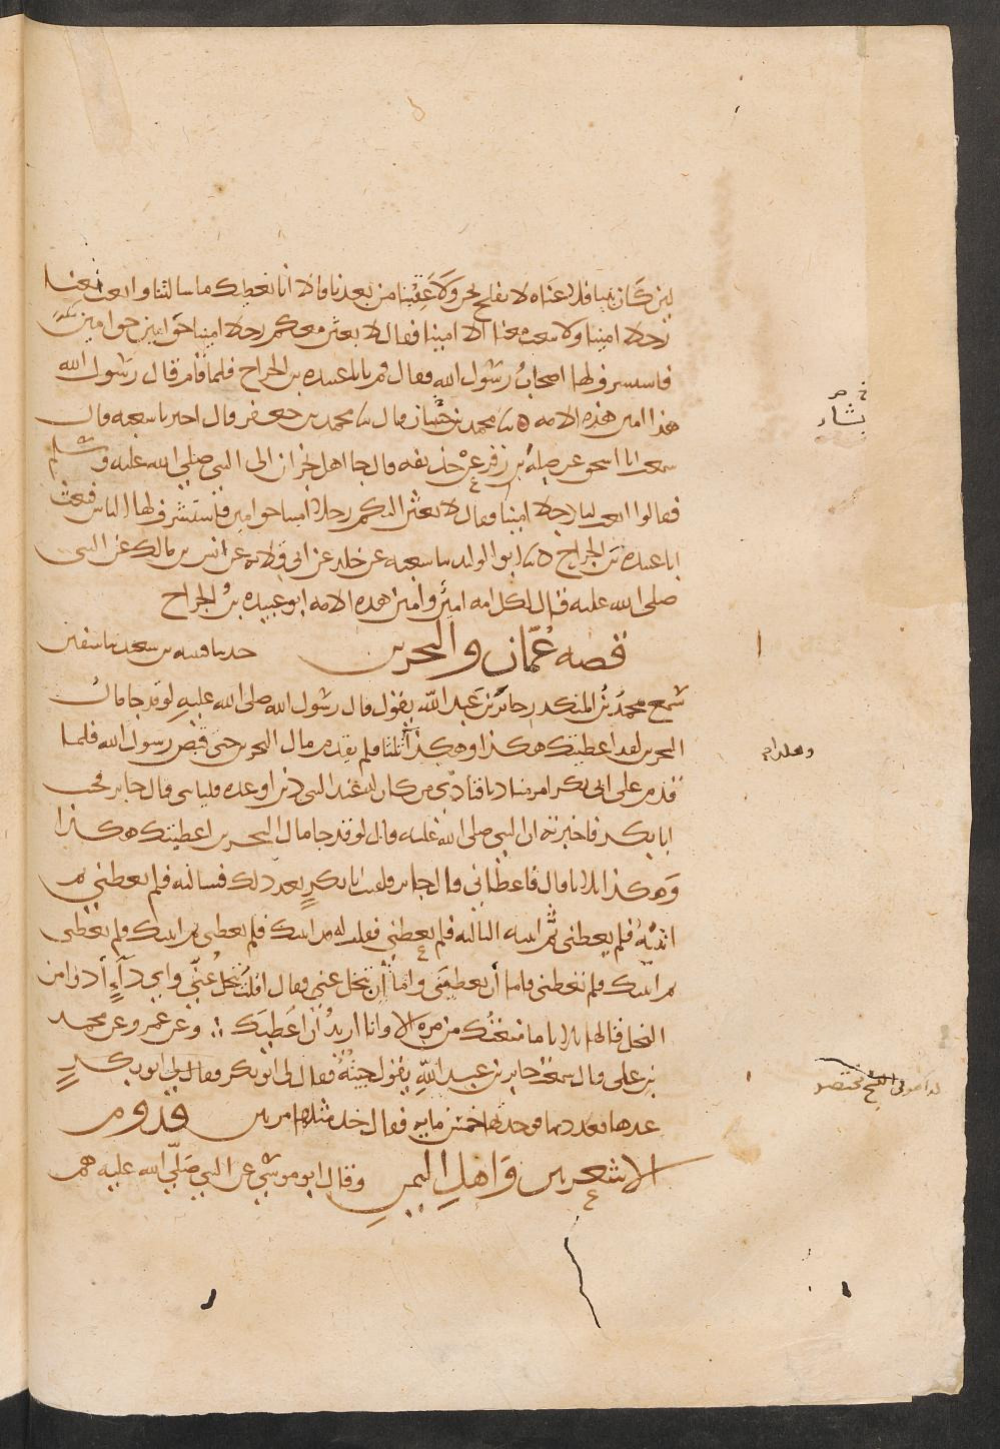 لين كان نبيا فلاعناه لا نفلح نحن ولا عقبنا من بعدنا قالا انا نعطيك ما سالتنا وابعث معنا
رجلا امينا ولا تبعث معنا الا امينا فقال لابعثن معكم رجلا امينا حق امين حق امين
فاستشرف لها اصحاب رسول الله فقال قم يا با عبيده بن الجراح فلما قام قال رسول الله
هذا امين هذه الامه ثنا محمد بن بشار قال ثنا محمد بن جعفر قال اخبرنا شعبه قال
سمعت ابا اسحق عن صله بن زفر عن حذيفه قال جا اهل نجران الى النبي صلى الله عليه وسلم
فقالوا ابعث لنا رجلا امينا فقال لابعثن اليكم رجلا امينا حق امين فاستشرف لها الناس فبعث
ابا عبيده بن الجراح ثنا ابو الوليد ثنا شعبه عن خلد عن ابي قلابه عن انس بن مالك عن النبي
صلى الله عليه قال لكل امه امين وامين هذه الامه ابو عبيده بن الجراح
قصه عُمَان والبحرين حدثنا قتيبه بن سعيد ثنا سفين
سمع محمدُ بنُ المنكدر جابرَ بن عبد الله يقول قال رسول الله صلى الله عليه لو قد جا مالُ
البحرين لقد اعطيتك هكذا وهكذا ثلثا فلم يقدم مال البحرين حتى قبض رسول الله فلما
قدم على ابي بكر امر مناديا فنادى من كان له عند النبي دين او عده فلياتني قال جابر فجيت
ابا بكر فاخبرته ان النبي صلى الله عليه قال لو قد جا مال البحرين اعطيتك هكذا
وهكذا ثلاثا قال فاعطاني قال جابر فلقيت ابا بكرٍ بعد ذلك فسالته فلم يعطني ثم
اتيته فلم يعطني ثم اتيته الثالثه فلم يعطني فقلت له قد اتيتك فلم تعطني ثم اتيتك فلم تعطني
ثم اتيتك فلم تعطني فاما أن تعطيني واما أن تبخل عني فقال اقلت تبخل عني واي دآءٍ أدوا من
البخل قالها ثلاثا ما منعتُك من مره الا وانا اريدُ أن اعطيَك وعن عمرو عن محمد
بن علي قال سمعت جابر بن عبد الله يقول جيته فقال لي ابو بكر فقال لي ابو بكرٍ
عدها فعددتها فوجدتها خمس مايه فقال خذ مثلها مرتين قدوم
الاشعريين وَاهلِ اليمنِ وقال ابو موسى عن النبي صلّى الله عليه هم
بشار
وهكذا